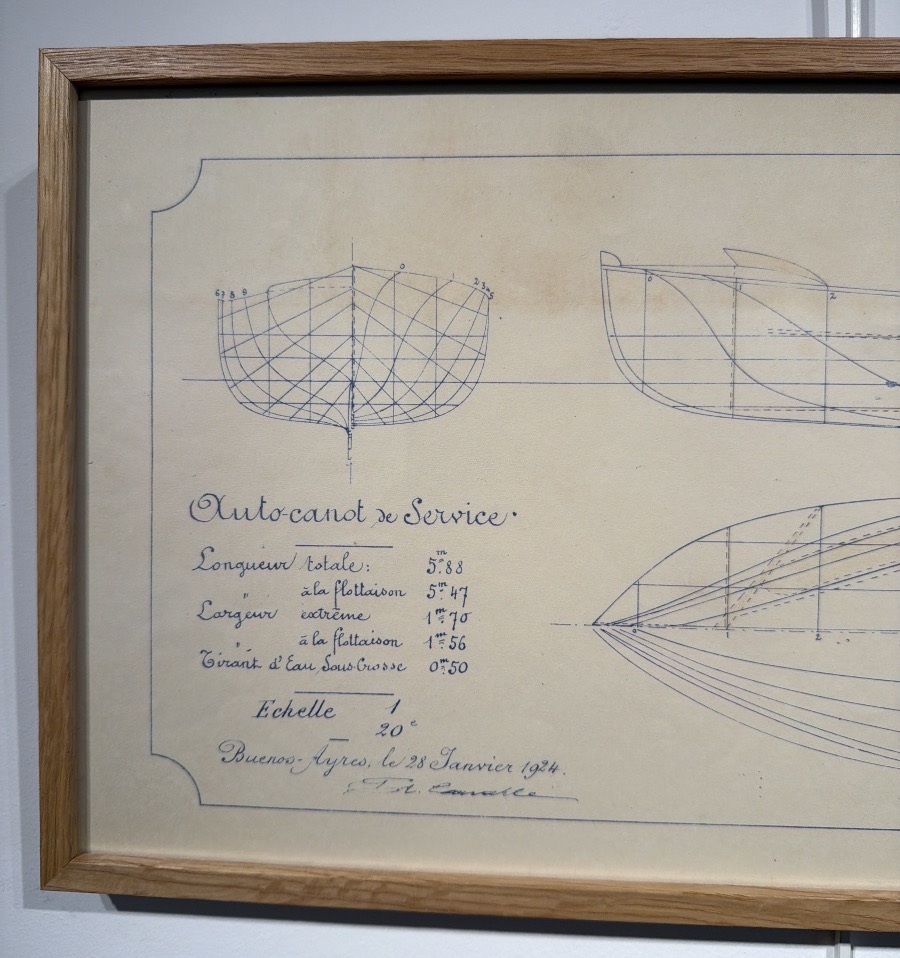 678 9
0
1
2 3 4 5
0
1
2
Auto-canot de Service.
Longueur totale: 5.m88
" à la flottaison 5.m47
Largeur extrême 1.m70
" à la flottaison 1.m56
Tirant d'Eau Sous Crosse 0.m50
Echelle 1
20e
Buenos-Ayres, le 28 Janvier 1924.
0
1
2